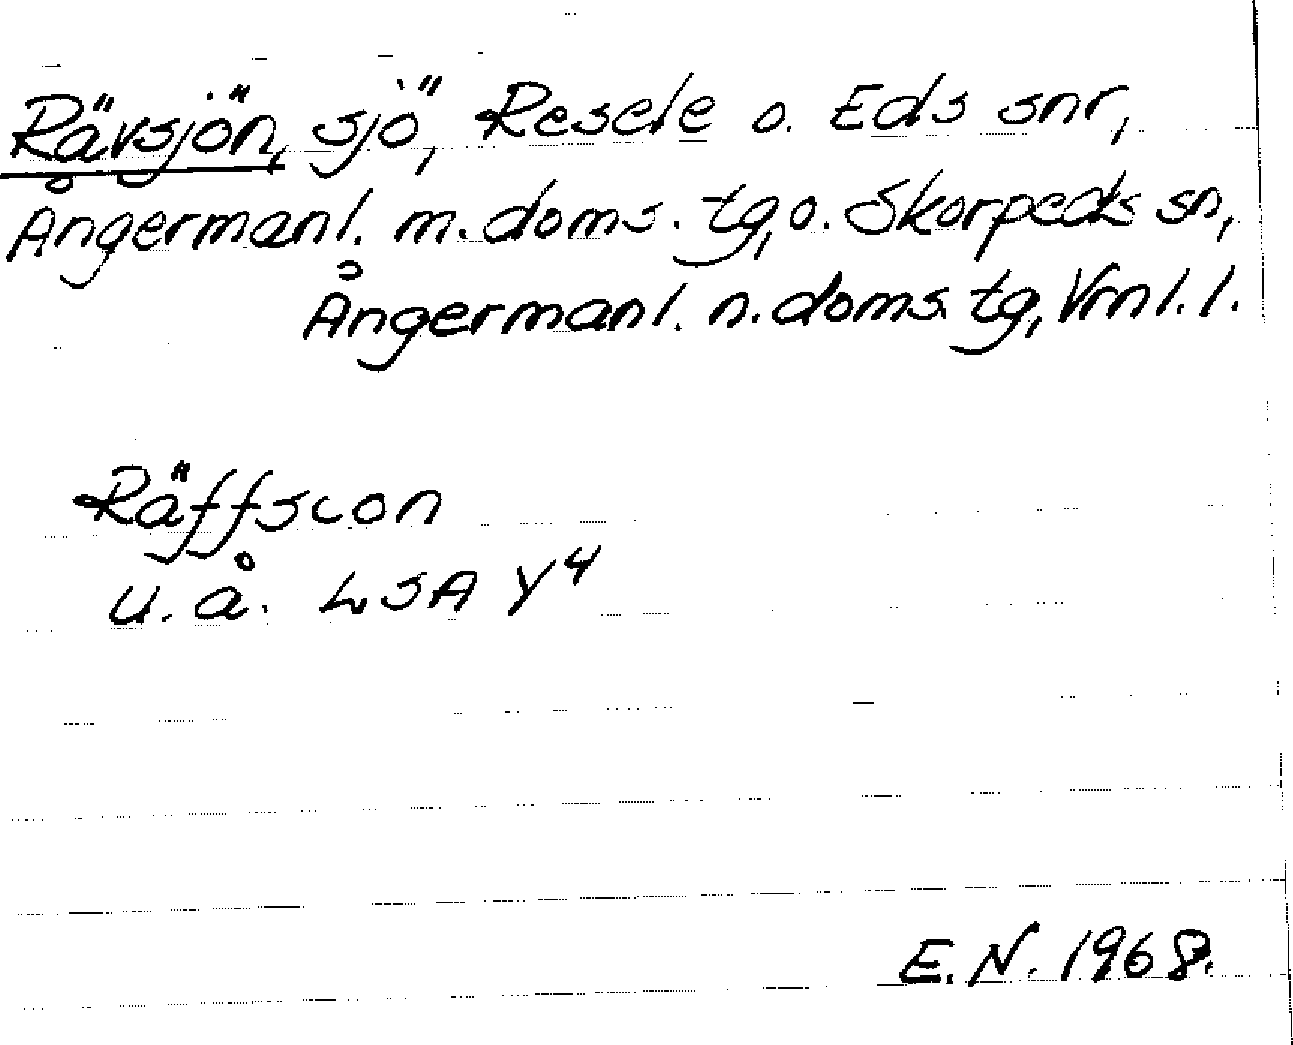 Rävsjön, sjö, Resele o. Eds snr,
Ångermanl. m. doms. tg, o. Skorpeds sn,
Ångermanl. n. doms. tg, Vrnl. l.
Räffscon
u. å. LSA Y4
E. N. 1968.